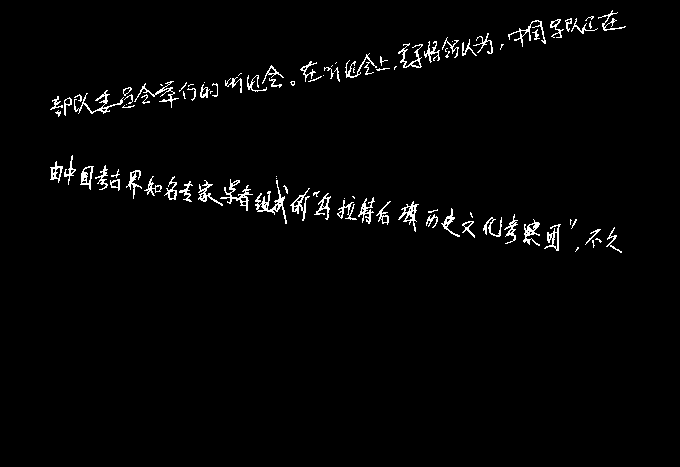 部队委员会举行的听证会。在听证会上,专将领认为,中国军队正在
由中国考古界知名专家学者组成的“乌拉特后旗历史文化考察团”,不久